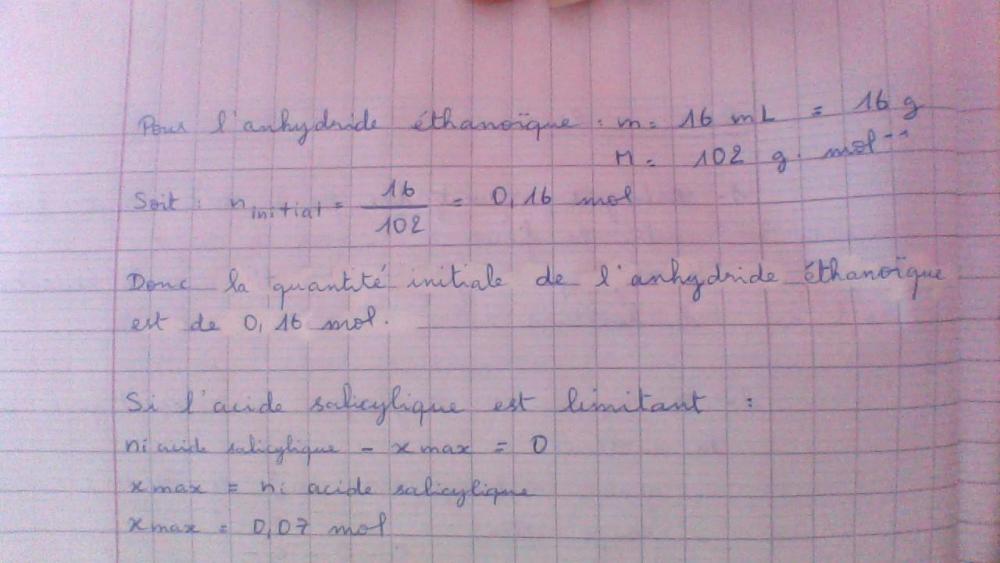 Pour l'anhydride éthanoïque : m = 16 mL = 16 g
M = 102 g. mol⁻¹
Soit : n initial = 16/102 = 0,16 mol
Donc la quantité initiale de l'anhydride éthanoïque
est de 0,16 mol.
Si l'acide salicylique est limitant :
ni acide salicylique - x max = 0
x max = ni acide salicylique
x max = 0,07 mol